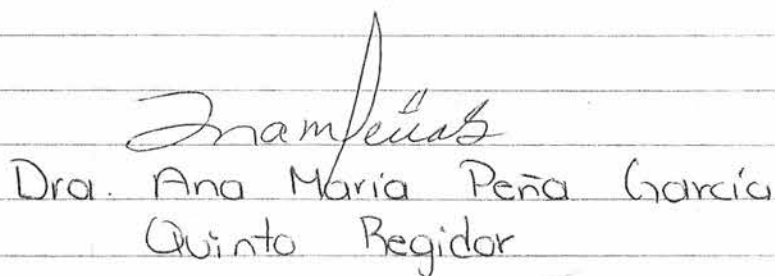 Dra. Ana María Peña García
Quinto Regidor